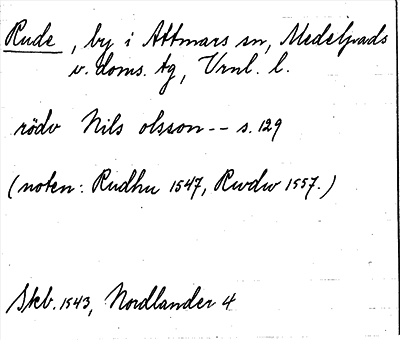 Rude, by i Attmars sn, Medelpads
v. doms. tg, Vrnl. l.
rödv Nils olsson -- s. 129
(noten: Rudhu 1547, Rwdw 1557.)
Skb. 1543, Nordlander 4